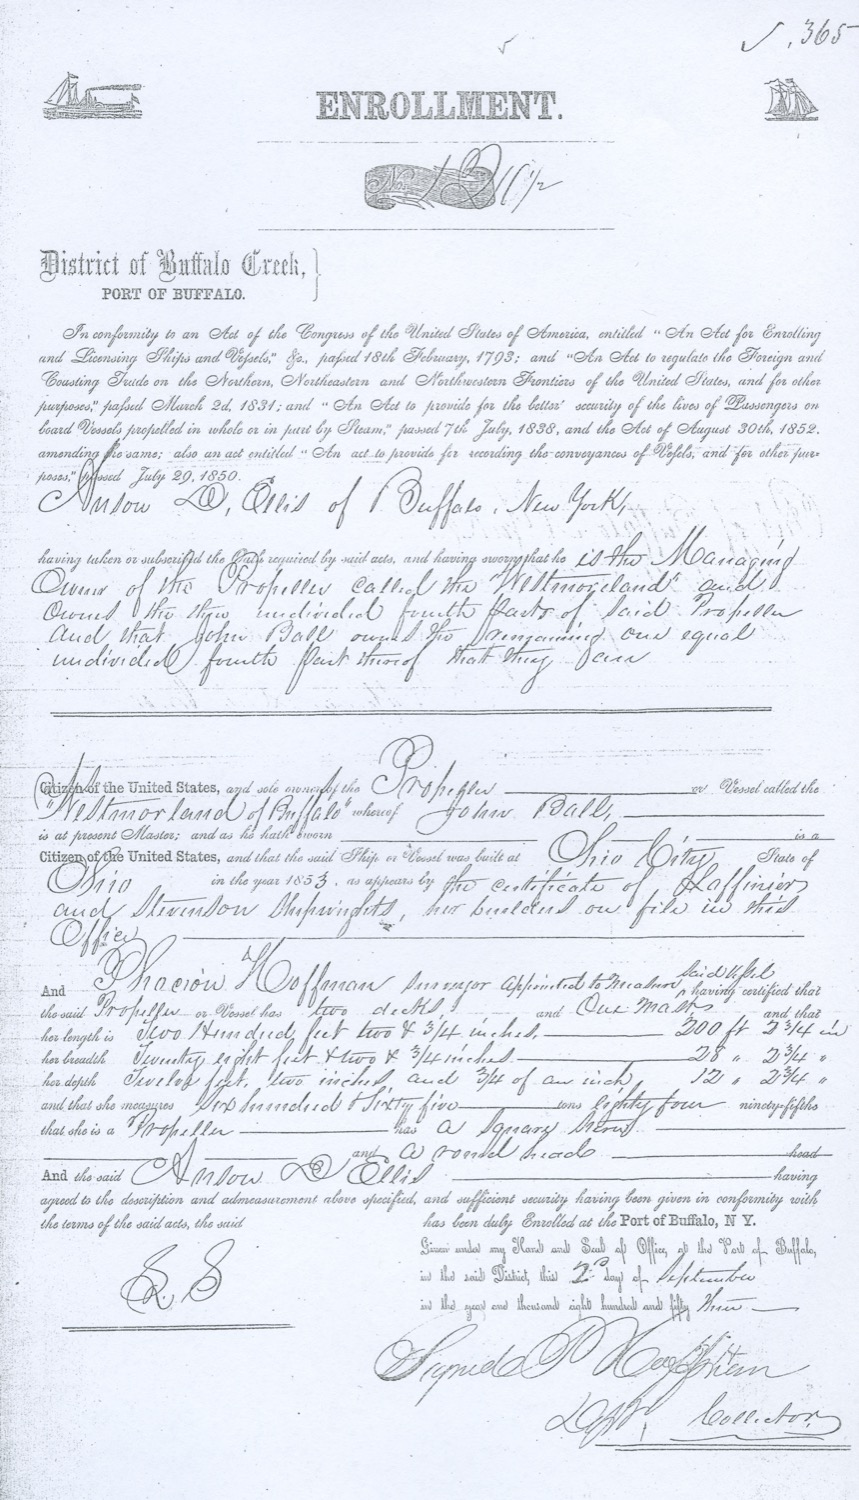 365
ENROLLMENT.
No.
District of Buffalo Creek,
PORT OF BUFFALO.
In conformity to an Act of the Congress of the United States of America, entitled "An Act for Enrolling
and Licensing Ships and Vessels," &c., passed 18th February, 1793; and "An Act to regulate the Foreign and
Coasting Trade on the Northern, Northeastern and Northwestern Frontiers of the United States, and for other
purposes," passed March 2d, 1831; and "An Act to provide for the better security of the lives of Passengers on
board Vessels propelled in whole or in part by Steam," passed 7th July, 1838, and the Act of August 30th, 1852.
amending the same; also an act entitled "An act to provide for recording the conveyances of Vessels, and for other pur-
poses," passed July 29, 1850.
Anson D, Ellis of Buffalo, New York,
having taken or subscribed the Oath required by said acts, and having sworn that he is the Managing
Owner of the Propeller called the "Westmoreland" and
owns the three undivided fourth parts of said Propeller
and that John Ball owns the remaining one equal
undivided fourth part thereof that they are
Citizen of the United States, and sole owner of the Propeller or Vessel called the
"Westmorland of Buffalo" whereof John Ball,
is at present Master; and as he hath sworn is a
Citizen of the United States, and that the said Ship or Vessel was built at Ohio City State of
Ohio in the year 1853, as appears by the certificate of Laffinier
and Stevenson Shipwrights, her builders on file in this
Office
And Phacion Hoffman surveyor appointed to measure said vessel having certified that
the said Propeller or Vessel has two decks, and One Mast and that
her length is Two Hundred feet two & 3/4 inches, 200 ft 2 3/4 in
her breadth Twenty eight feet & two & 3/4 inches 28 " 2 3/4 "
her depth Twelve feet, two inches, and 3/4 of an inch, 12 " 2 3/4 "
and that she measures Six hundred & Sixty five tons eighty four ninety-fifths
that she is a Propeller has a square stern
and a round head head
And the said Anson D Ellis having
agreed to the description and admeasurement above specified, and sufficient security having been given in conformity with
the terms of the said acts, the said has been duly Enrolled at the Port of Buffalo, N Y.
Given under my Hand and Seal of Office, at the Port of Buffalo,
in the said District, this 2d day of September
in the year one thousand eight hundred and fifty three
L. S
Signed P Hoffman
Dpt, Collector